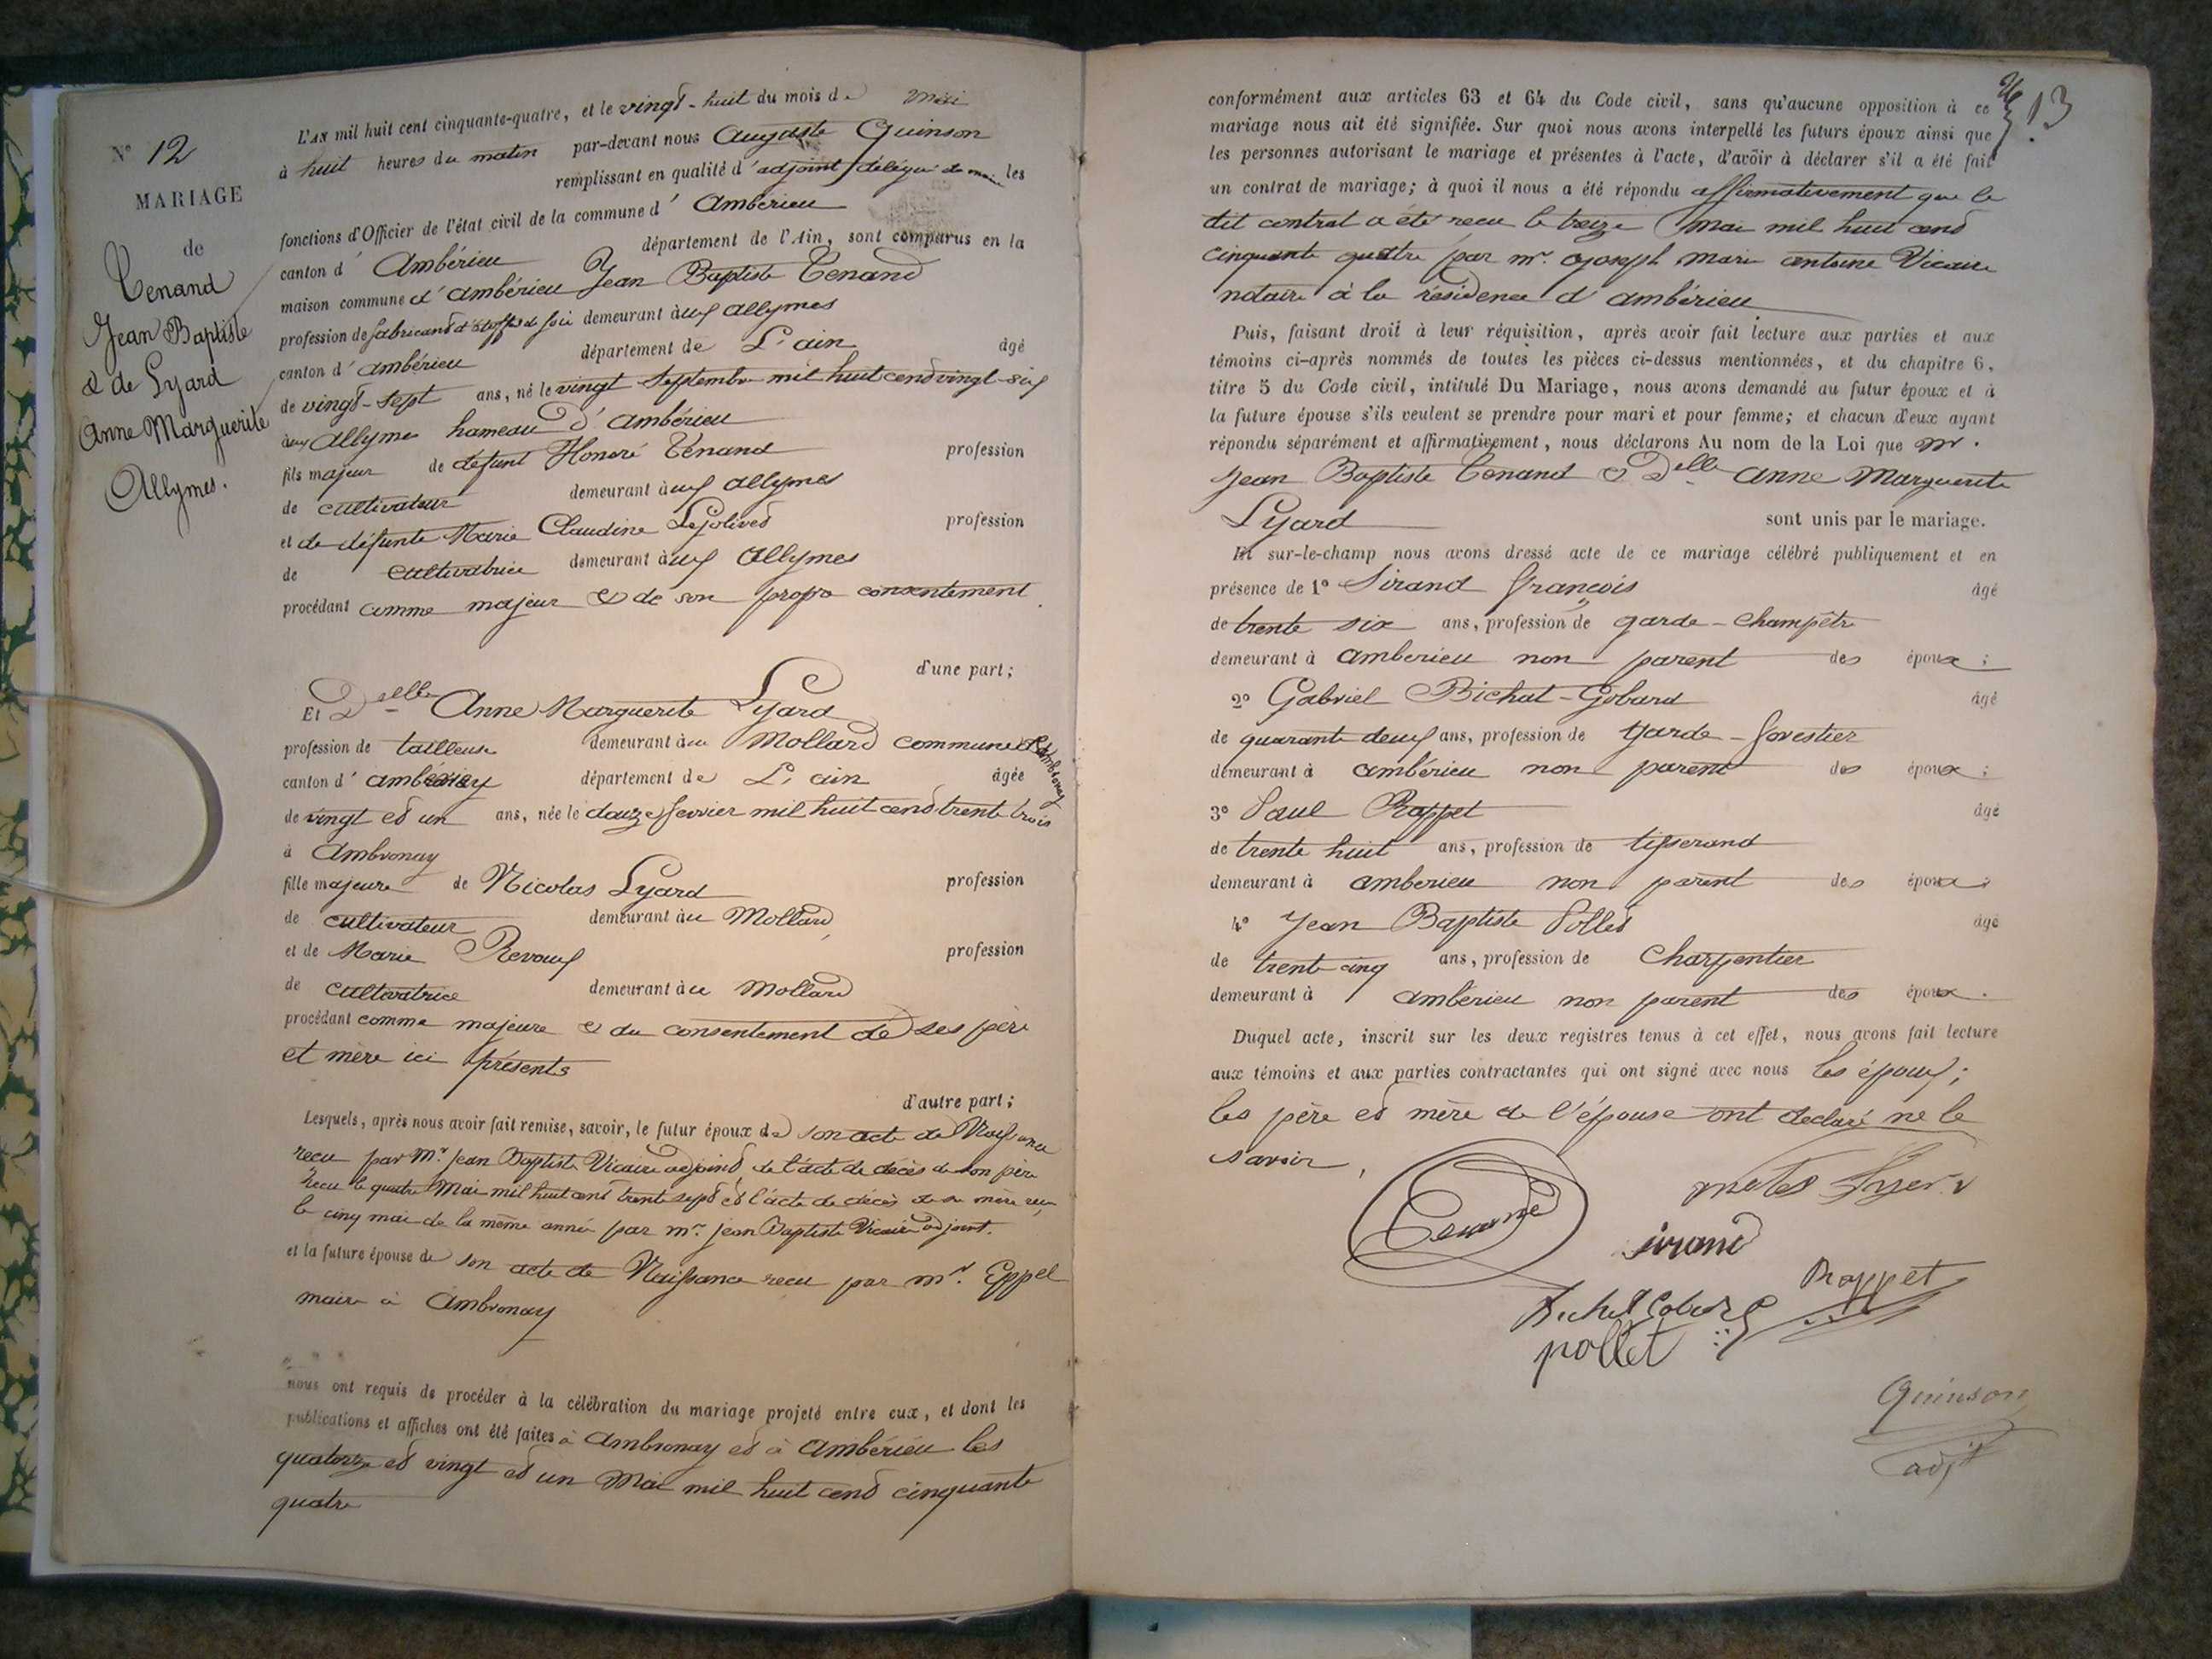 N° 12
MARIAGE
de
Tenand
Jean Baptiste
& de Lyard
Anne Marguerite
Allymes.
L'AN mil huit cent cinquante-quatre, et le vingt-huit du mois de mai
à huit heures du matin par-devant nous Auguste Quinson
remplissant en qualité d'adjoint délégué du maire les
fonctions d'Officier de l'état civil de la commune d'Ambérieu
canton d'Ambérieu département de l'Ain, sont comparus en la
maison commune d'ambérieu Jean Baptiste Tenand
profession de fabricant d'étoffes de soie demeurant aux allymes
canton d'ambérieu département de L'ain âgé
de vingt-sept ans, né le vingt Septembre mil huit cent vingt-six
aux Allymes hameau d'ambérieu
fils majeur de défunt Honoré Tenand profession
de cultivateur demeurant aux allymes
et de défunte Marie Claudine profession
de cultivatrice demeurant aux Allymes
procédant comme majeur & de son propre consentement.
d'une part;
Et Delle Anne Marguerite Lyard
profession de tailleuse demeurant au Mollard commune d'ambronay
canton d'ambérieu département de L'ain âgée
de vingt et un ans, née le douze fevrier mil huit cent trente trois
à Ambronay
fille majeure de Nicolas Lyard profession
de cultivateur demeurant au Mollard
et de Marie Revoux profession
de cultivatrice demeurant au Mollard
procédant comme majeure & du consentement de ses père
et mère ici présents
d'autre part;
Lesquels, après nous avoir fait remise, savoir, le futur époux de son acte de Naissance
recu par Mr. Jean Baptiste Vicaire adjoint, de l'acte de décès de son père
recu le quatre Mai mil huit cent trente sept et l'acte de décès de sa mère recu
le cinq mai de la même année par mr. jean Baptiste Vicaire adjoint.
et la future épouse de son acte de Naissance recu par mr. Eppel
maire à Ambronay
nous ont requis de procéder à la célébration du mariage projeté entre eux, et dont les
publications et affiches ont été faites à Ambronay et à Ambérieu les
quatorze et vingt et un Mai mil huit cent cinquante
quatre
13
conformément aux articles 63 et 64 du Code civil, sans qu'aucune opposition à ce
mariage nous ait été signifiée. Sur quoi nous avons interpellé les futurs époux ainsi que
les personnes autorisant le mariage et présentes à l'acte, d'avoir à déclarer s'il a été fait
un contrat de mariage; à quoi il nous a été répondu affirmativement que le
dit contrat a été recu le treize Mai mil huit cent
cinquante quatre par mr. Joseph Marie antoine Vicaire
notaire à la résidence d'ambérieu
Puis, faisant droit à leur réquisition, après avoir fait lecture aux parties et aux
témoins ci-après nommés de toutes les pièces ci-dessus mentionnées, et du chapitre 6,
titre 5 du Code civil, intitulé Du Mariage, nous avons demandé au futur époux et à
la future épouse s'ils veulent se prendre pour mari et pour femme; et chacun d'eux ayant
répondu séparément et affirmativement, nous déclarons Au nom de la Loi que Mr.
Jean Baptiste Tenand & Delle Anne Marguerite
Lyard sont unis par le mariage.
Et sur-le-champ nous avons dressé acte de ce mariage célébré publiquement et en
présence de 1° Sirand François âgé
de trente six ans, profession de garde-Champêtre
demeurant à amberieu non parent des époux;
2° Gabriel Bichat-Gobard âgé
de quarante deux ans, profession de Garde-forestier
demeurant à ambérieu non parent des époux;
3° Paul Rappet âgé
de trente huit ans, profession de tisserand
demeurant à amberieu non parent des époux;
4° Jean Baptiste Pollet âgé
de trent cinq ans, profession de Charpentier
demeurant à ambérieu non parent des époux.
Duquel acte, inscrit sur les deux registres tenus à cet effet, nous avons fait lecture
aux témoins et aux parties contractantes qui ont signé avec nous les époux;
les père et mère de l'épouse ont declaré ne le
savoir,
Tenand
sirand
Bichat Gobard
Rappet
pollet
Quinson
adjt